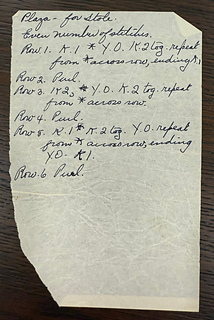 Plaza - for Stole.
Even number of stitches.
Row 1. K.1 * Y.O. K2 tog. repeat
from * across row, ending K1
Row 2. Purl.
Row 3. K2, * Y.O. K2 tog. repeat
from * across row.
Row 4. Purl.
Row 5. K-1 * K2 tog. Y.O. repeat
from * across row, ending
Y.O. K1.
Row 6 Purl.